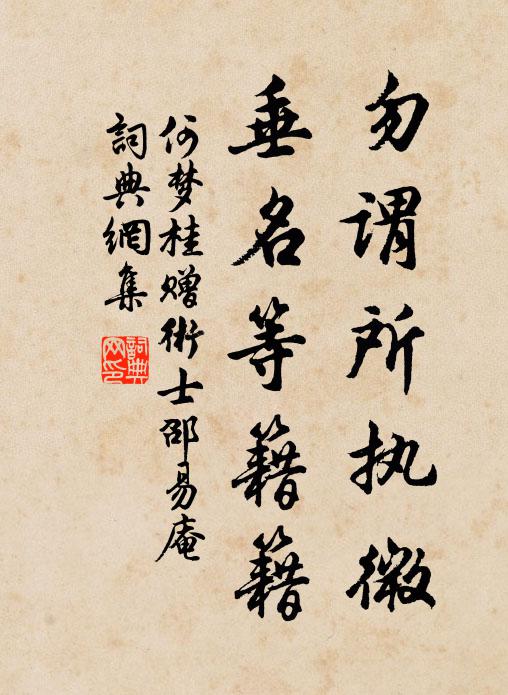 勿谓所执微
垂名等籍籍
何梦桂赠術士邵易庵
詞典網集
詞典网印